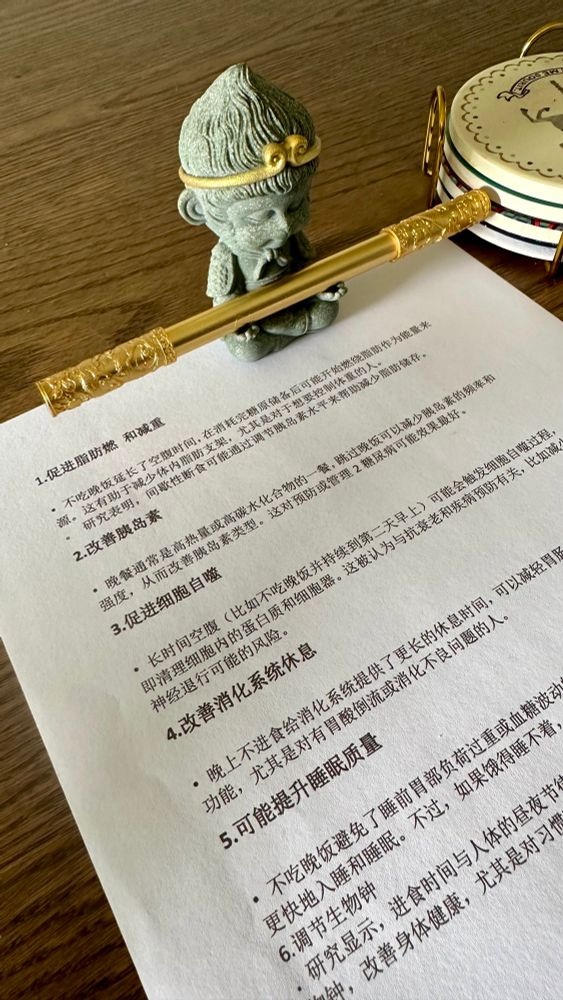 1.促进脂肪燃 和减重
• 不吃晚饭延长了空腹时间，在消耗完糖原储备后可能开始燃烧脂肪作为能量来
源。这有助于减少体内脂肪支架，尤其是对于想要控制体重的人。
• 研究表明，间歇性断食可能通过调节胰岛素水平来帮助减少脂肪储存。
2.改善胰岛素
• 晚餐通常是高热量或高碳水化合物的一餐，跳过晚饭可以减少胰岛素的频率和
强度，从而改善胰岛素类型。这对预防或管理 2 糖尿病可能效果最好。
3.促进细胞自噬
• 长时间空腹（比如不吃晚饭并持续到第二天早上）可能会触发细胞自噬过程，
即清理细胞内的蛋白质和细胞器。这被认为与抗衰老和疾病预防有关，比如减少
神经退行可能的风险。
4.改善消化系统休息
• 晚上不进食给消化系统提供了更长的休息时间，可以减轻胃肠
功能，尤其是对有胃酸倒流或消化不良问题的人。
5.可能提升睡眠质量
• 不吃晚饭避免了睡前胃部负荷过重或血糖波动
更快地入睡和睡眠。不过，如果饿得睡不着，
6.调节生物钟
• 研究显示，进食时间与人体的昼夜节律
物钟，改善身体健康，尤其是对习惯